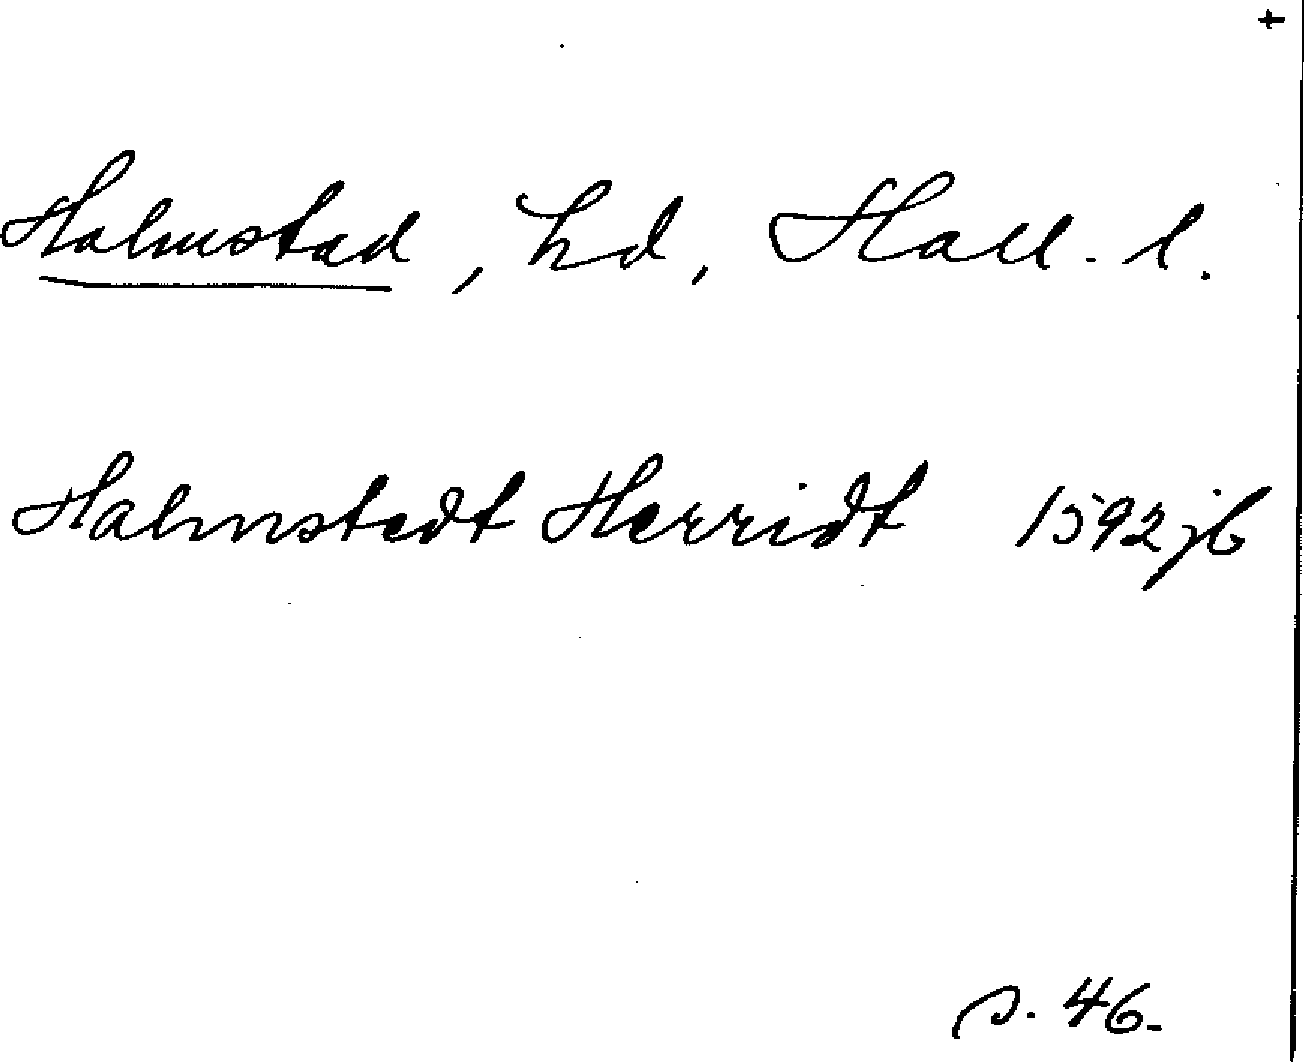 +
Halmstad, hd, Hall. l.
Halmstedt Herridt 1592 jb
s. 46.